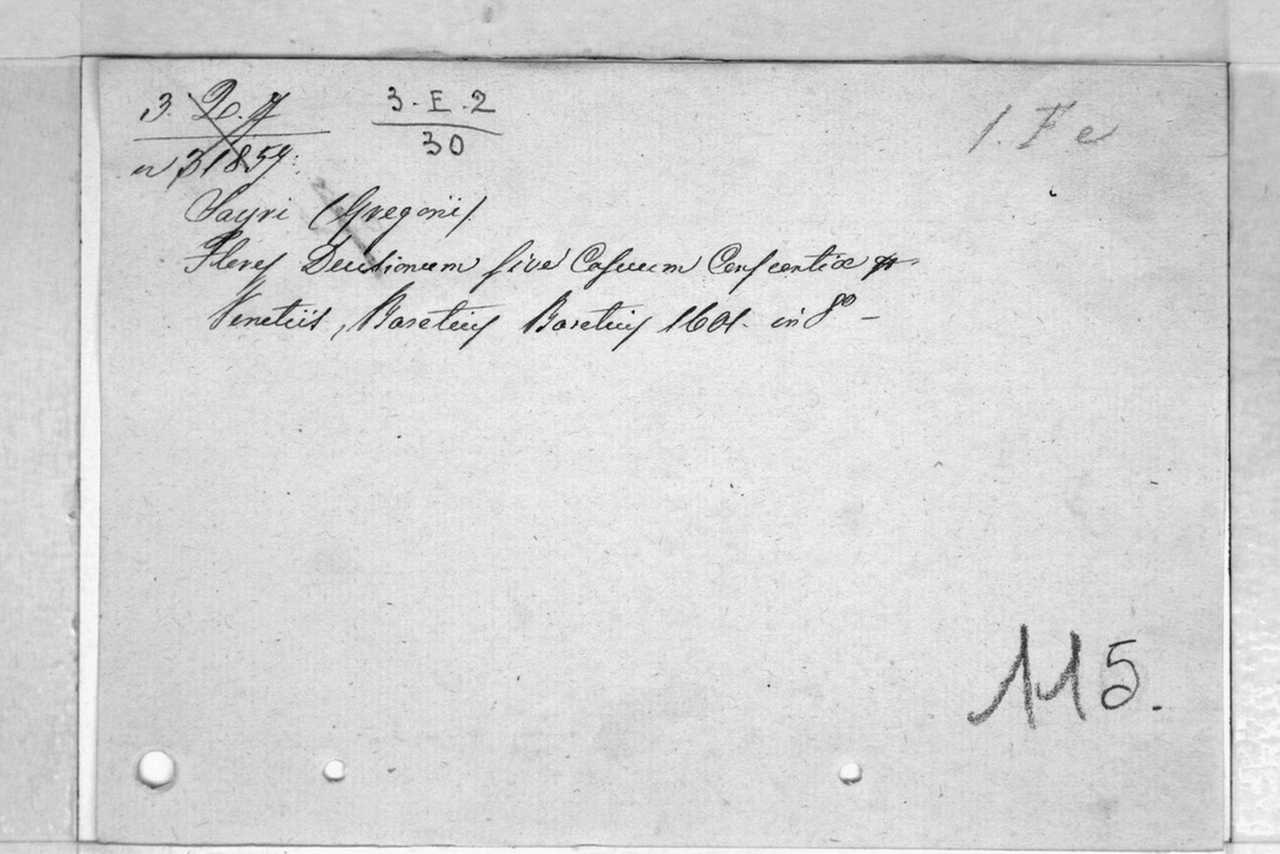 3. D. 7 3-E-2
n 31859. 30
1. Fe
Sayri (Gregorii)
Flores Decisionum sive Casuum Conscientiæ
Venetiis, Baretius Baretius 1601. in 8º -
115.